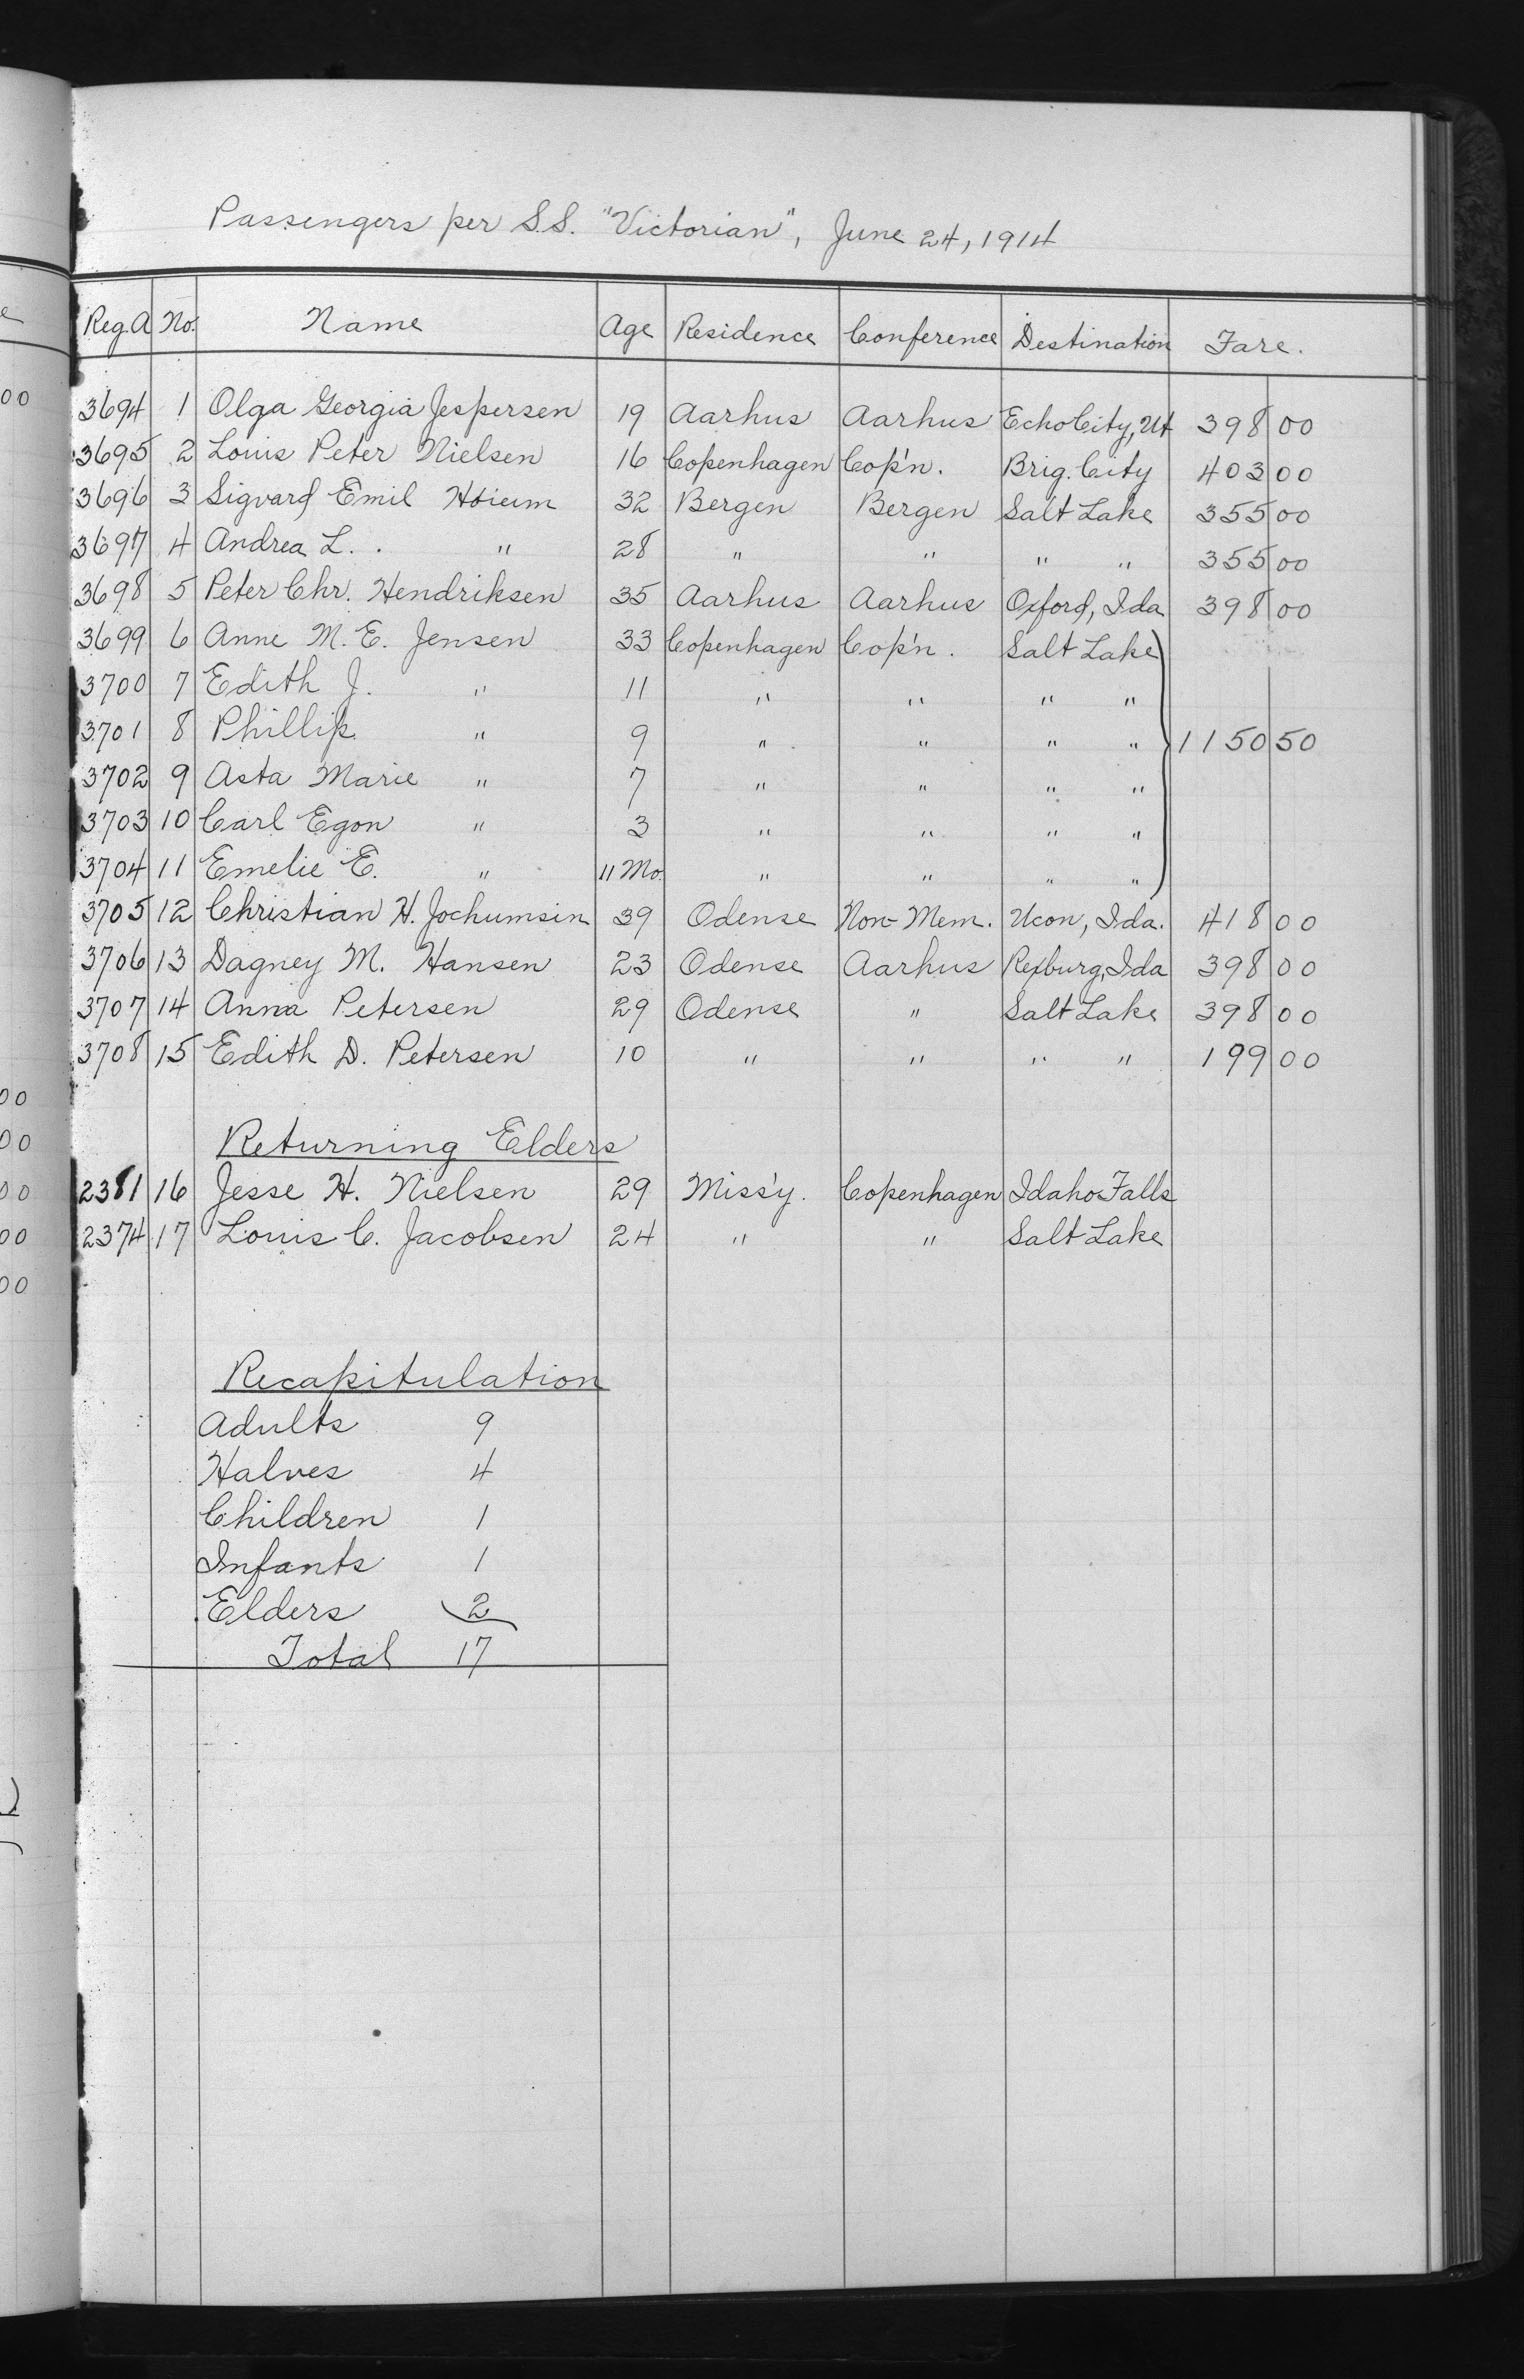 Passengers per S.S. "Victorian", June 24, 1914
Reg.A No. Name Age Residence Conference Destination Fare.
3694 1 Olga Georgia Jespersen 19 Aarhus Aarhus Echo City, Ut 398 00
3695 2 Louis Peter Nielsen 16 Copenhagen Cop'n. Brig. City 403 00
3696 3 Sigvard Emil Hoium 32 Bergen Bergen Salt Lake 355 00
3697 4 Andrea L. " 28 " " " " 355 00
3698 5 Peter Chr. Hendriksen 35 Aarhus Aarhus Oxford, Ida 398 00
3699 6 Anne M. E. Jensen 33 Copenhagen Cop'n. Salt Lake
3700 7 Edith J. " 11 " " " "
3701 8 Phillip " 9 " " " " 1150 50
3702 9 Asta Marie " 7 " " " "
3703 10 Carl Egon " 3 " " " "
3704 11 Emelie E. " 11 Mo. " " " "
3705 12 Christian H. Jochumsin 39 Odense Non-Mem. Ucon, Ida. 418 00
3706 13 Dagney M. Hansen 23 Odense Aarhus Rexburg, Ida 398 00
3707 14 Anna Petersen 29 Odense " Salt Lake 398 00
3708 15 Edith D. Petersen 10 " " " " 199 00
Returning Elders
2381 16 Jesse H. Nielsen 29 Miss'y. Copenhagen Idaho Falls
2374 17 Louis C. Jacobsen 24 " " Salt Lake
Recapitulation
Adults 9
Halves 4
Children 1
Infants 1
Elders 2
Total 17